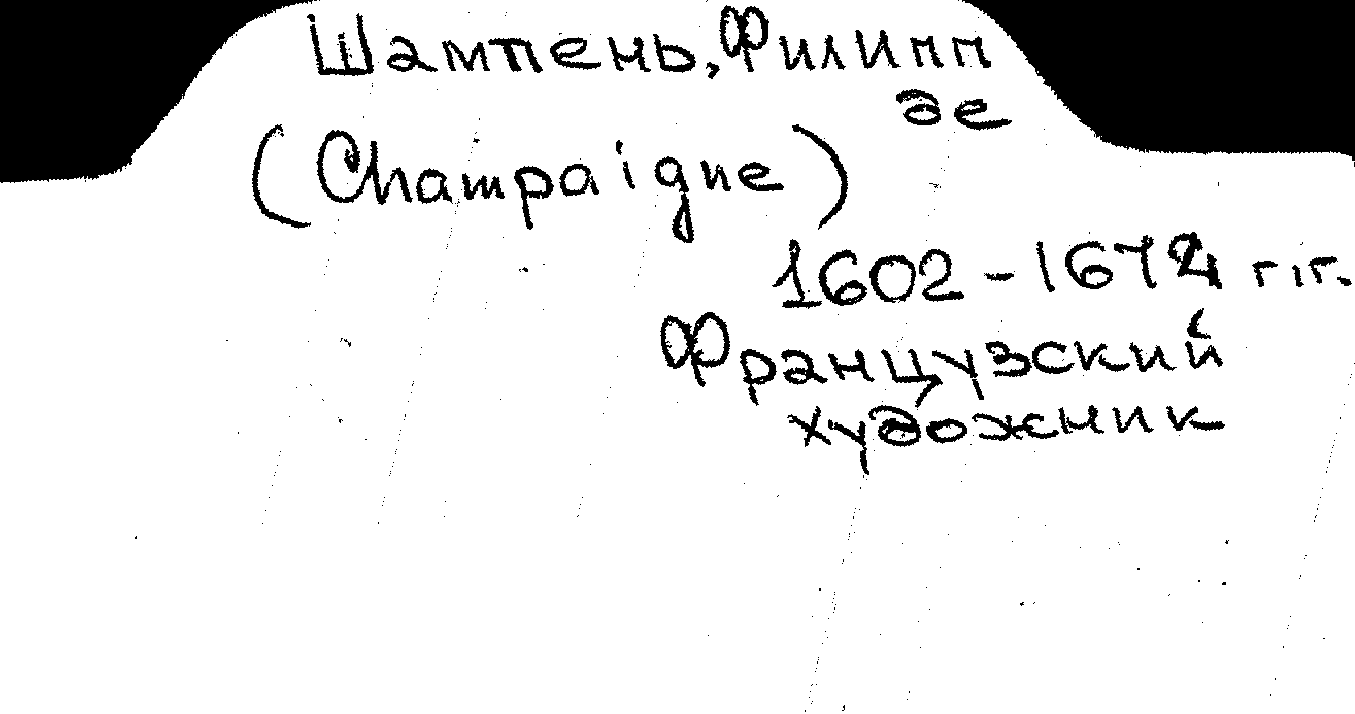 Шампень, Филипп
де
(Champaigne)
1602 - 1674 г.г.
Французский
художник